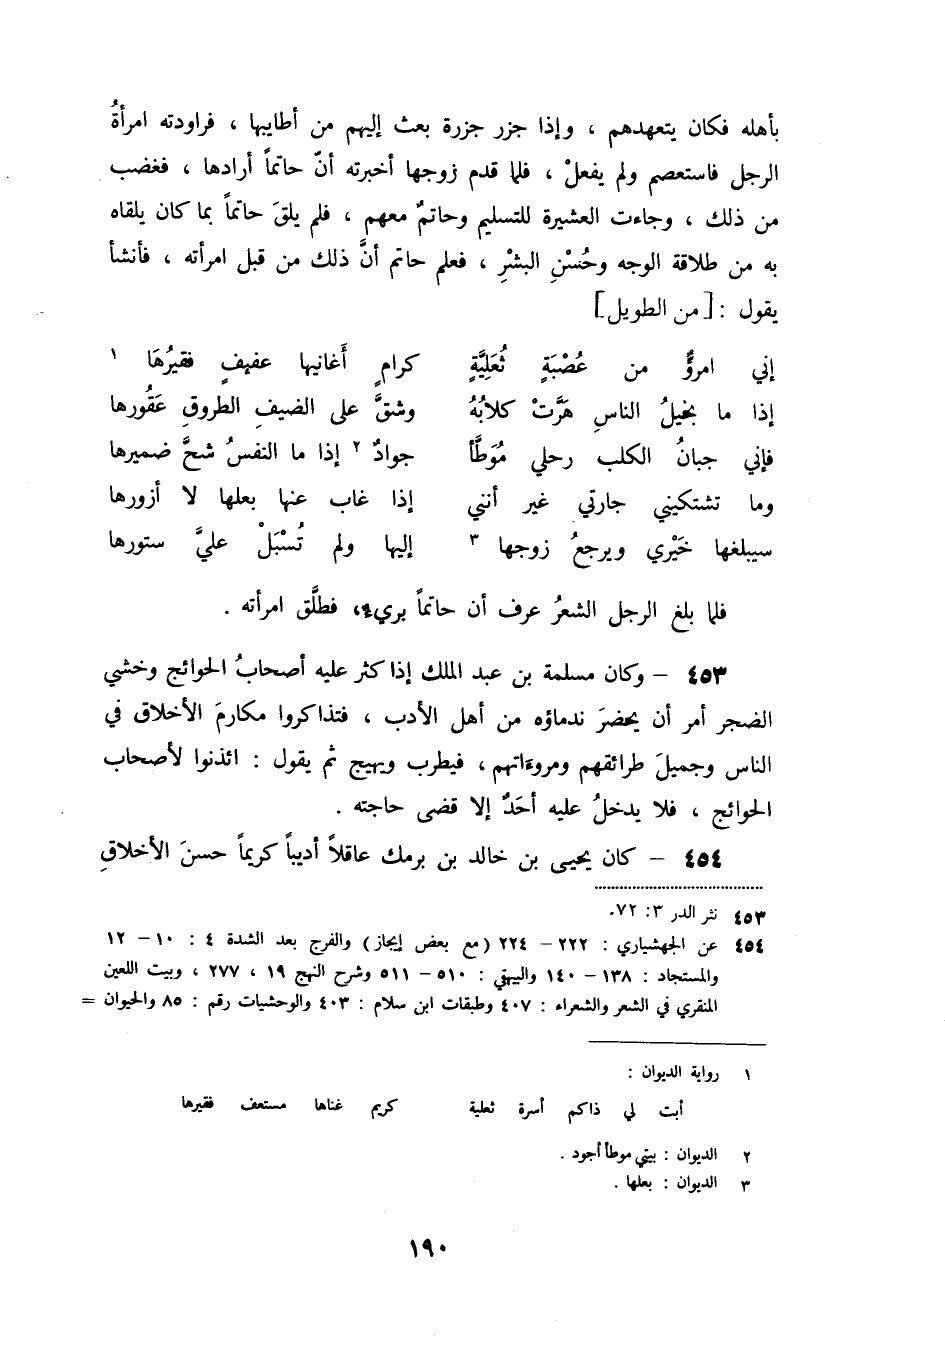 بأهله فكان يتعهدهم ، وإذا جزر جزرة بعث إليهم من أطايبها ، فراودته امرأةُ
الرجل فاستعصم ولم يفعلْ ، فلما قدم زوجها أخبرته أنّ حاتماً أرادها ، فغضب
من ذلك ، وجاءت العشيرة للتسليم وحاتمٌ معهم ، فلم يلقَ حاتماً بما كان يلقاه
به من طلاقة الوجه وحُسْنِ البشْرِ ، فعلم حاتم أنَّ ذلك من قبل امرأته ، فأنشأ
يقول : [من الطويل]
إني امرؤٌ من عُصْبَةٍ ثُعَلِيَّةٍ كرامٍ أَغانيها عفيفٍ فقيرُهَا ١
إذا ما بخيلُ الناسِ هَرَّتْ كلابُهُ وشقَّ على الضيفِ الطروقِ عَقُورها
فإني جبانُ الكلب رحلي مُوَطَّأ جوادٌ ٢ إذا ما النفسُ شحَّ ضميرها
وما تشتكيني جارتي غير أنني إذا غاب عنها بعلها لا أزورها
سيبلغها خَيْري ويرجعُ زوجها ٣ إليها ولم تُسْبَلْ عليَّ ستورها
فلما بلغ الرجل الشعرُ عرف أن حاتماً بريء، فطلَّق امرأته .
٤٥٣ – وكان مسلمة بن عبد الملك إذا كثر عليه أصحابُ الحوائج وخشي
الضجر أمر أن يحضرَ ندماؤه من أهل الأدب ، فتذاكروا مكارمَ الأخلاق في
الناس وجميلَ طرائقهم ومروءاتهم ، فيطرب ويهيج ثم يقول : ائذنوا لأصحاب
الحوائج ، فلا يدخلُ عليه أحَدٌ إلا قضى حاجته .
٤٥٤ – كان يحيى بن خالد بن برمك عاقلاً أديباً كريماً حسنَ الأخلاقِ
٤٥٣ نثر الدر ٣: ٧٢.
٤٥٤ عن الجهشياري : ٢٢٢ – ٢٢٤ (مع بعض إيجاز) والفرج بعد الشدة ٤ : ١٠ – ١٢
والمستجاد : ١٣٨ – ١٤٠ والبيهقي : ٥١٠ – ٥١١ وشرح النهج ١٩ ، ٢٧٧ ، وبيت اللعين
المنقري في الشعر والشعراء : ٤٠٧ وطبقات ابن سلام : ٤٠٣ والوحشيات رقم : ٨٥ والحيوان =
١ رواية الديوان :
أبت لي ذاكم أسرة ثعلية كريم غناها مستعف فقيرها
٢ الديوان : بيتي موطأ أجود .
٣ الديوان : بعلها .
١٩٠